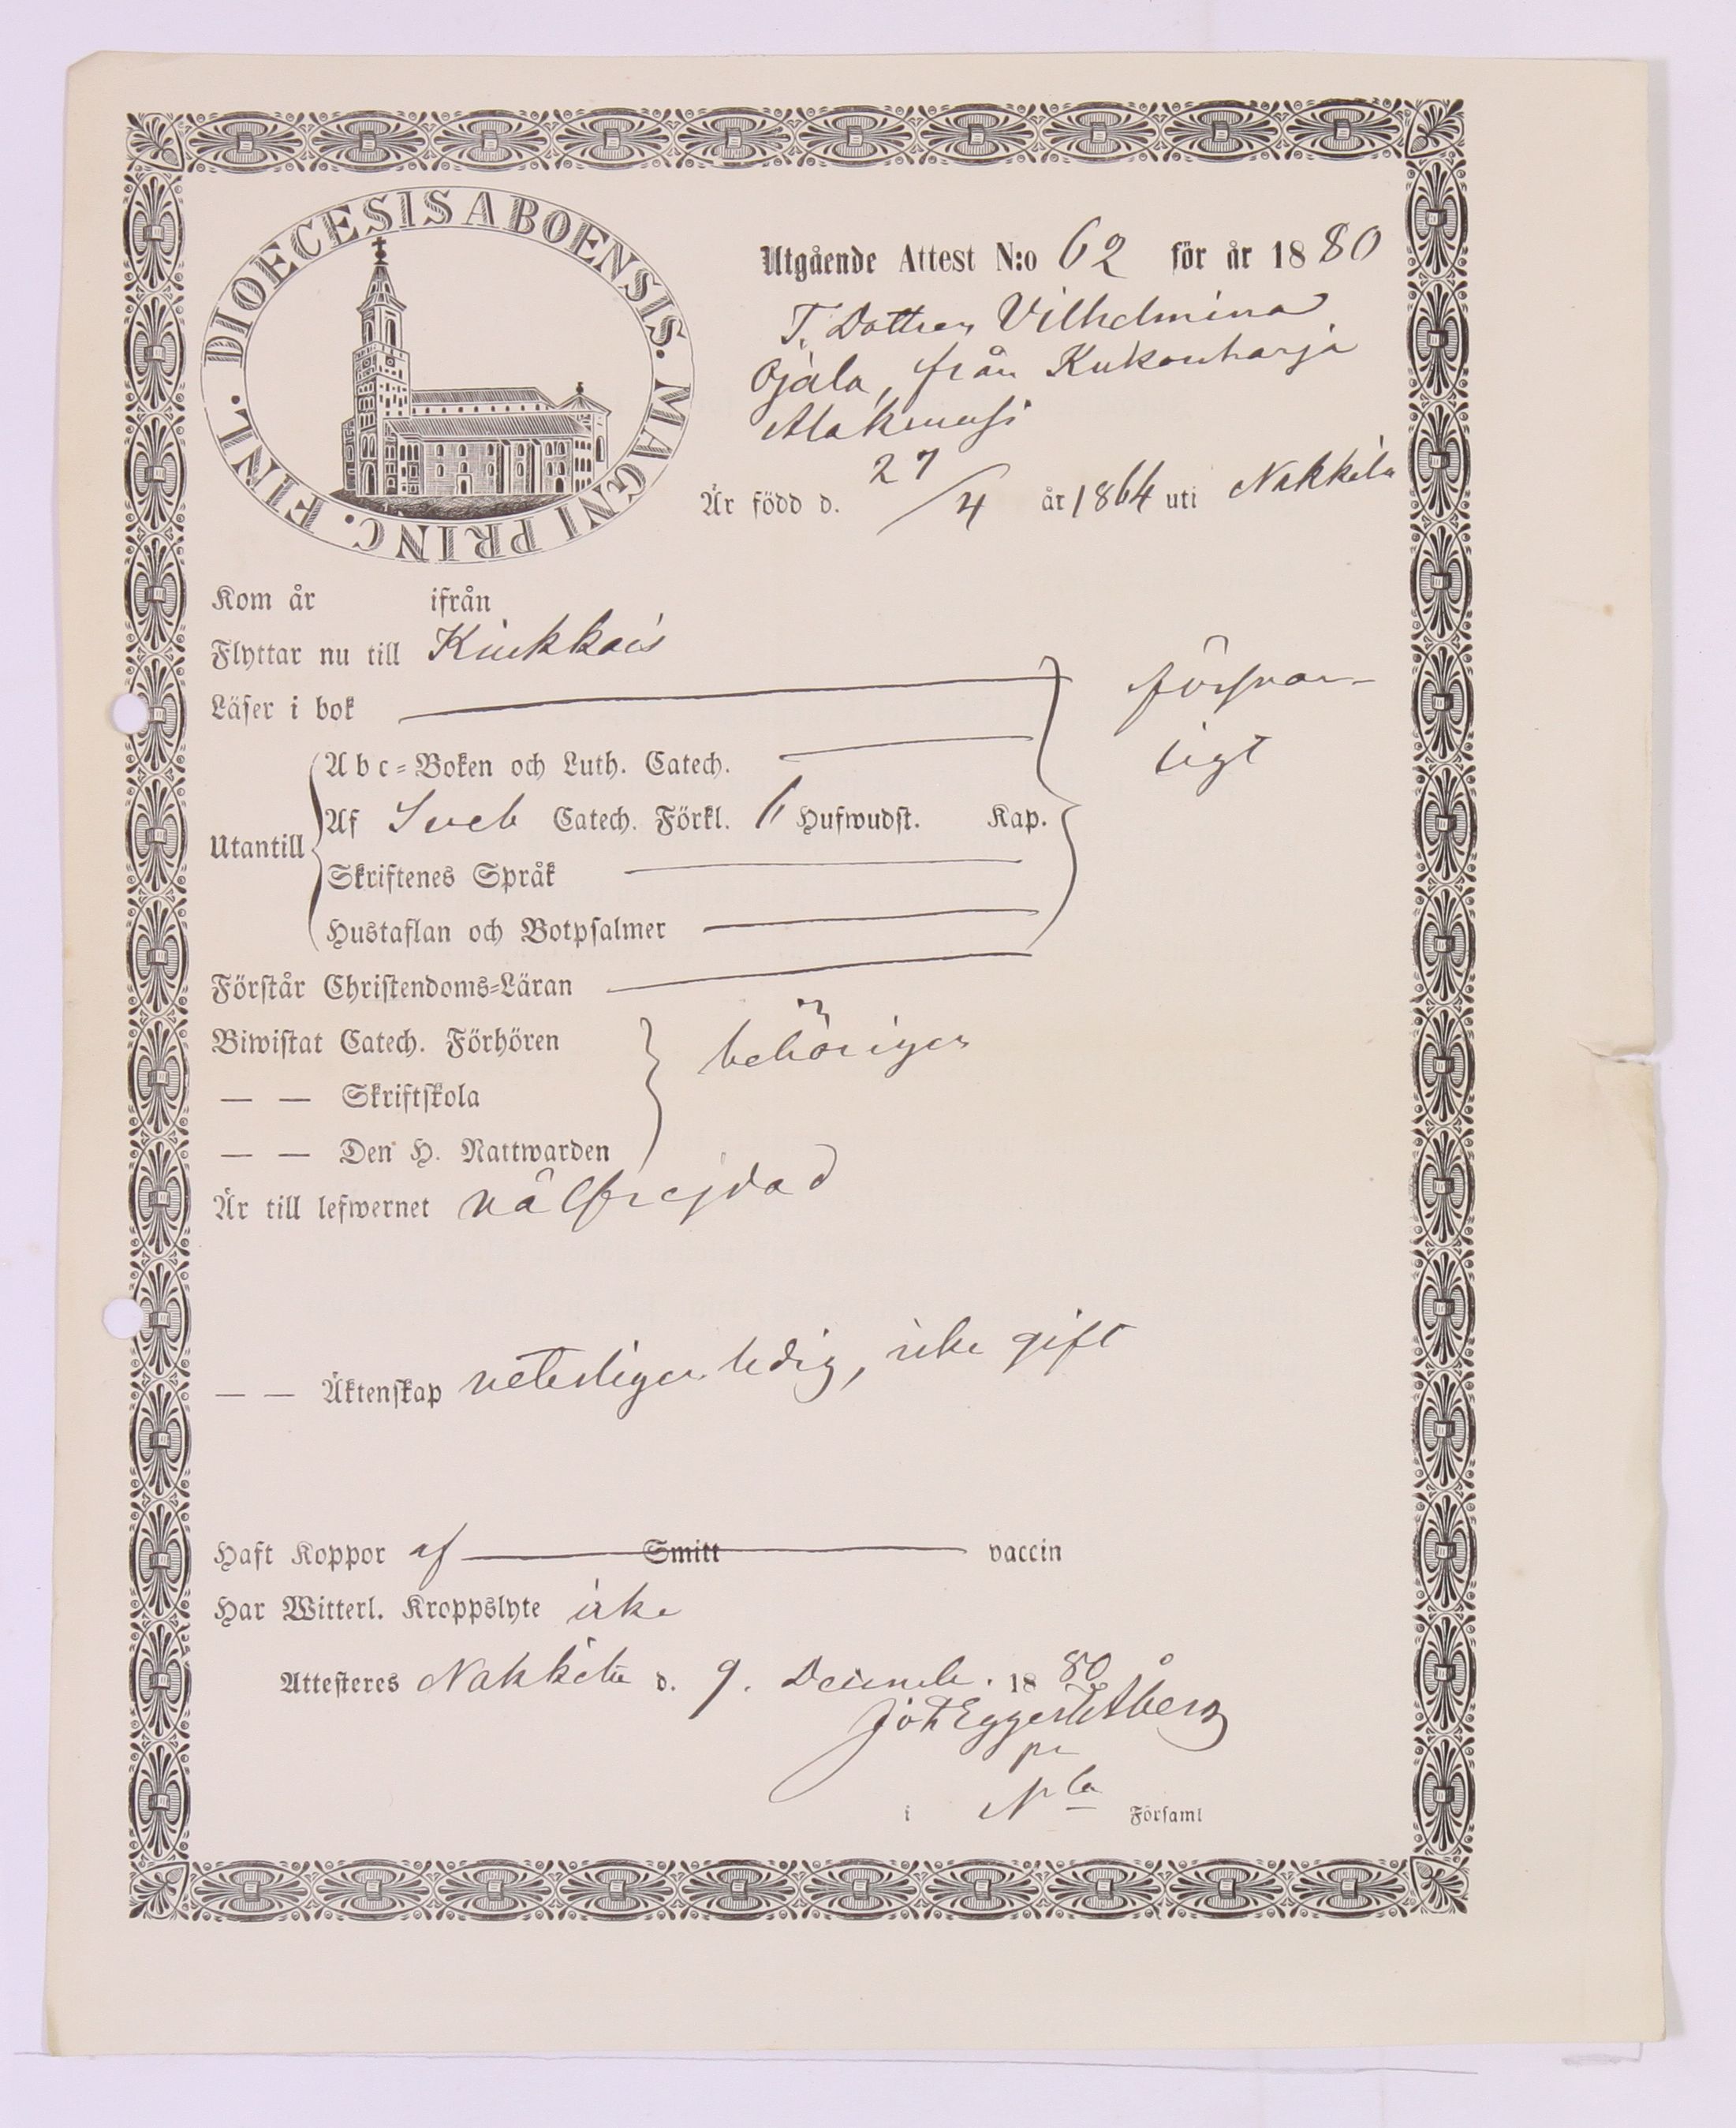 DIOECESIS ABOENSIS. MAGNI PRINC. FINL.
Utgående Attest N:o 62 för år 1880
T. Dottren Vilhelmina
Ojala, från Kukonharja
Är född d. 27/4 år 1864 uti Nakkila
Kom år ifrån
Flyttar nu till Kiukkais
Läser i bok
försvar-
ligt
Abc-Boken och Luth. Catech.
Utantill
Af Sveb Catech. Förkl. 6 Hufwudst. Kap.
Skriftenes Språk
Hustaflan och Botpsalmer
Förstår Christendoms-Läran
Biwistat Catech. Förhören
behörigen
— — Skriftskola
— — Den H. Nattwarden
Är till lefwernet välfrejdad
— — Äktenskap veterligen ledig, icke gift
Haft Koppor af Smitt vaccin
Har Witterl. Kroppslyte icke
Attesteres Nakkila d. 9. Decemb. 1880
Åberg
i Nla Församl